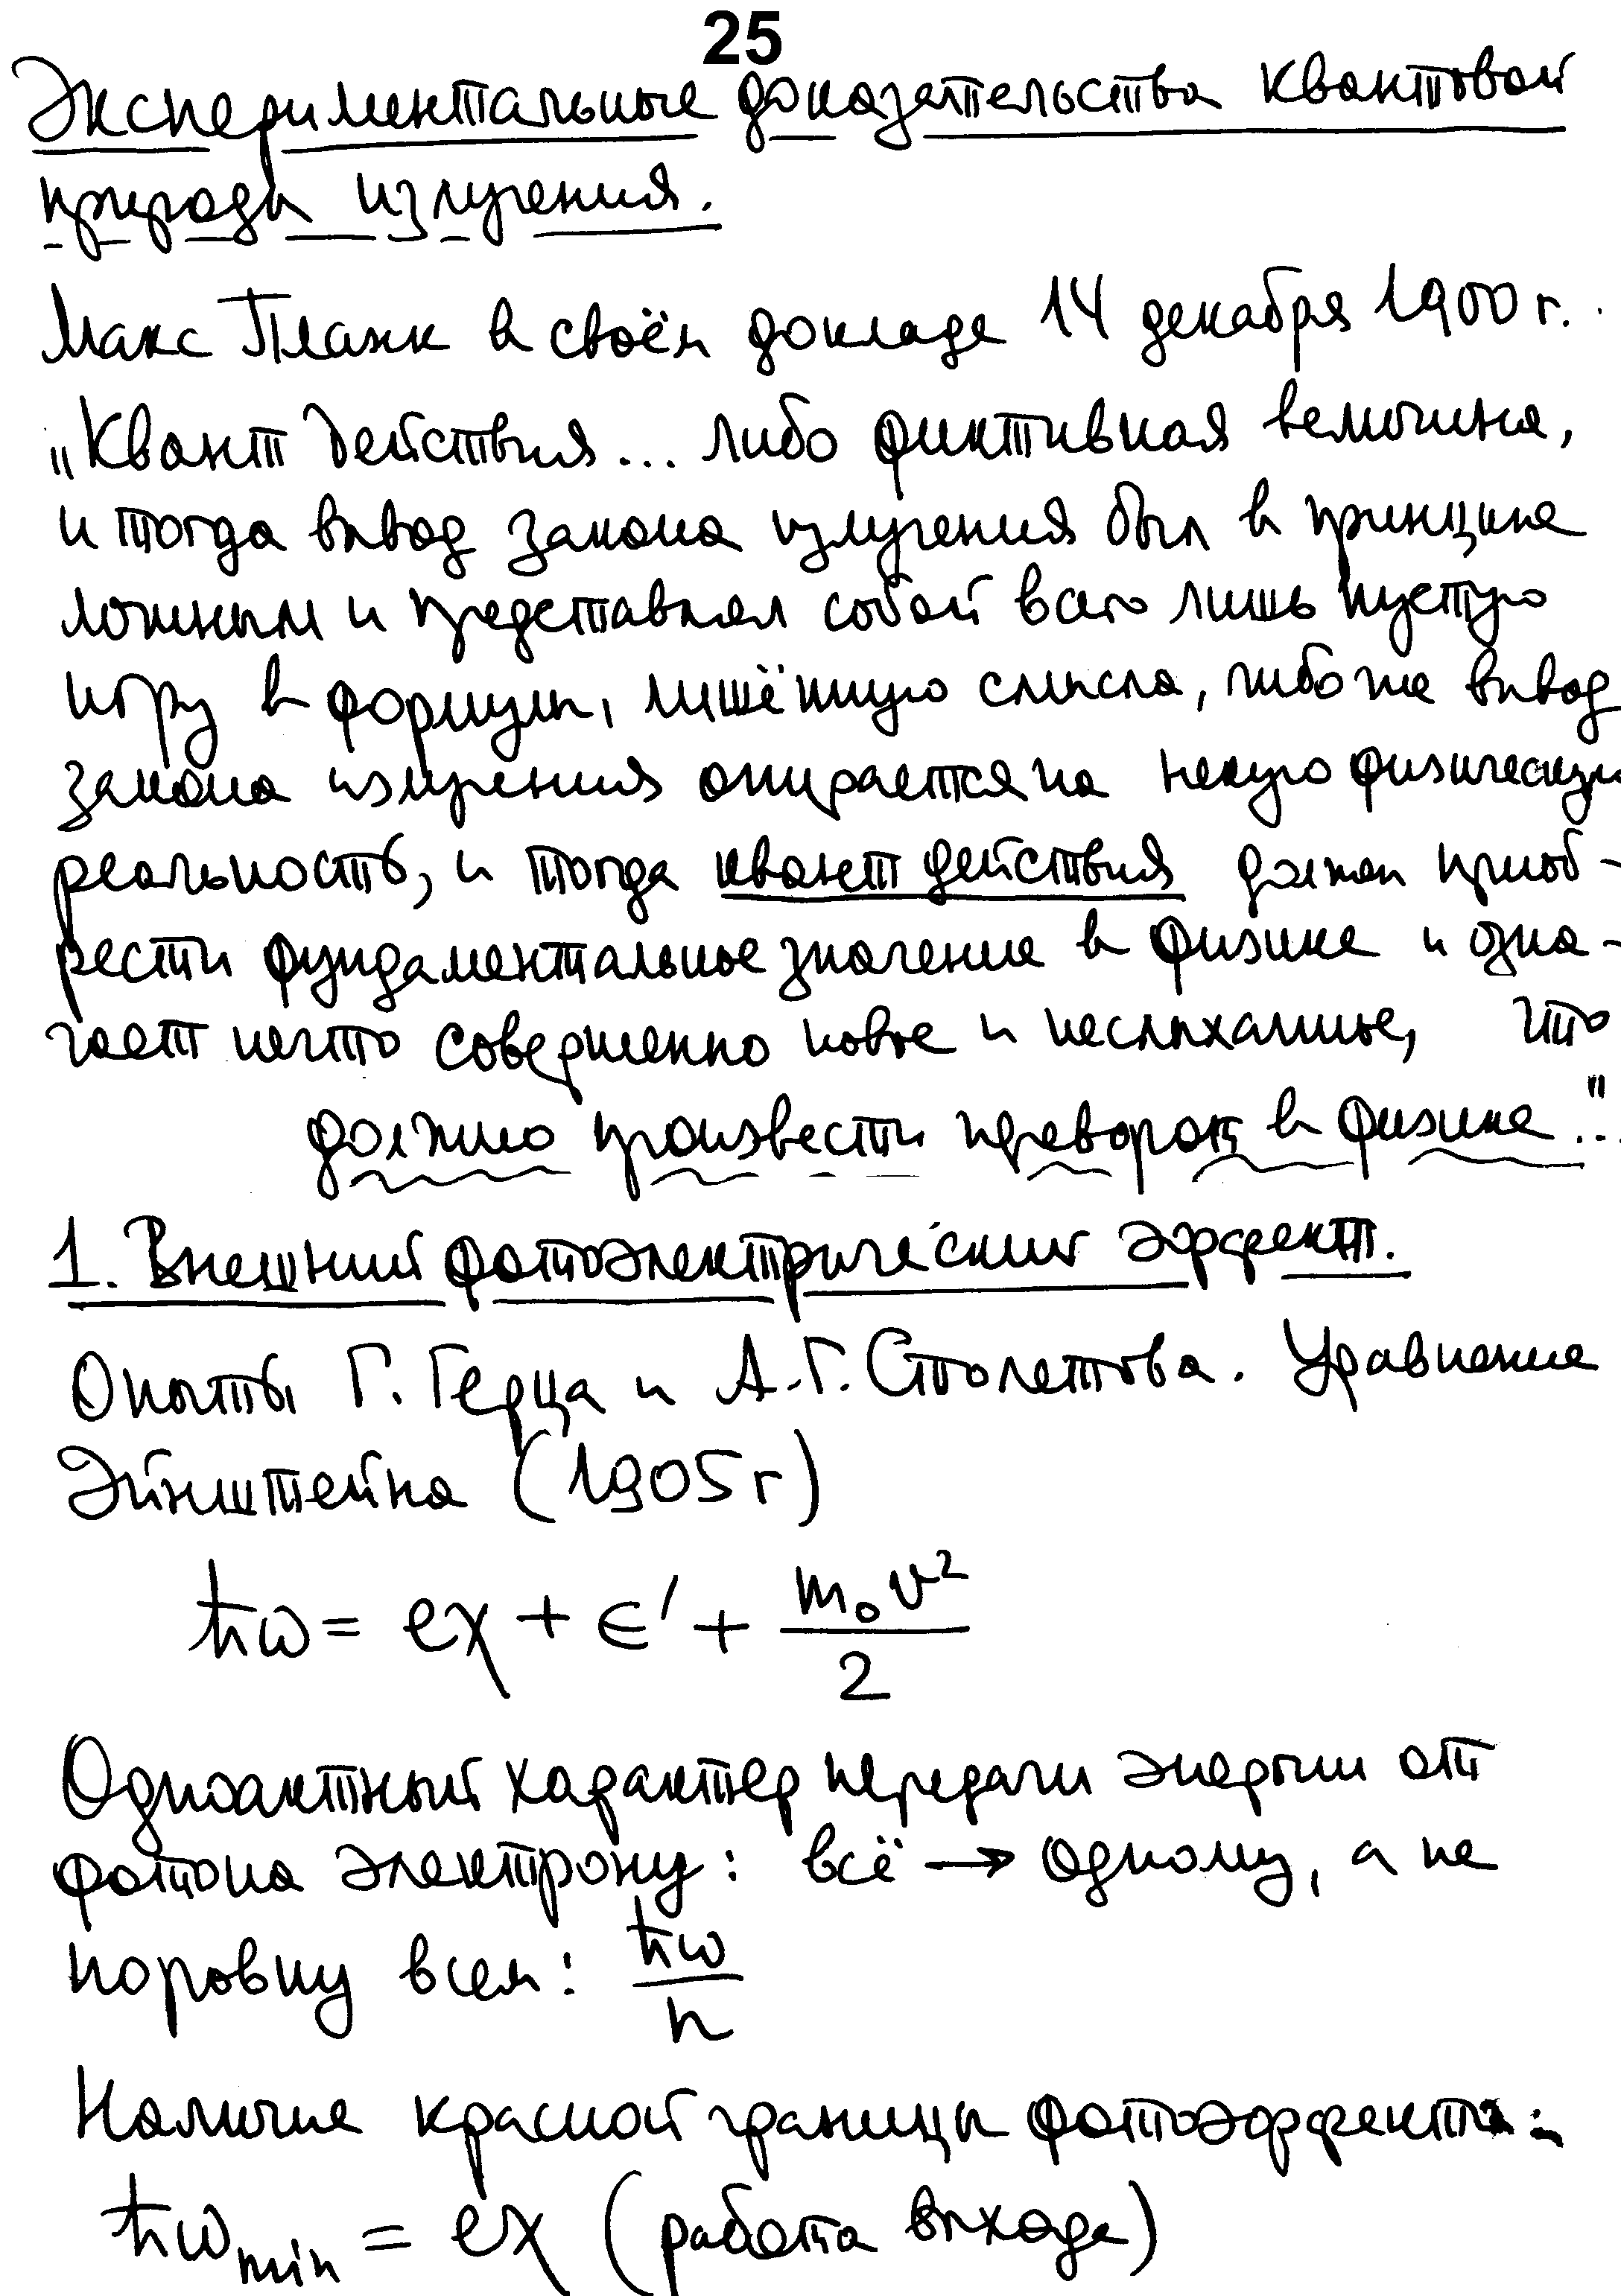 25
Экспериментальные доказательства квантовой
природы излучения.
Макс Планк в своём докладе 14 декабря 1900 г.
„Квант действия... либо фиктивная величина,
и тогда вывод закона излучения был в принципе
ложным и представлял собой всего лишь пустую
игру в формулы, лишённую смысла, либо же вывод
закона излучения опирается на некую физическую
реальность, и тогда квант действия должен приоб-
рести фундаментальное значение в физике и озна-
чает нечто совершенно новое и неслыханное, что
должно произвести переворот в физике..."
1. Внешний фотоэлектрический эффект.
Опыты Г. Герца и А.Г. Столетова. Уравнение
Эйнштейна (1905 г)
ħω = eχ + ϵ′ + m₀v²/2
Одноактный характер передачи энергии от
фотона электрону: всё → одному, а не
поровну всем: ħω/n
Наличие красной границы фотоэффекта:
ħω_min = eχ (работа выхода)